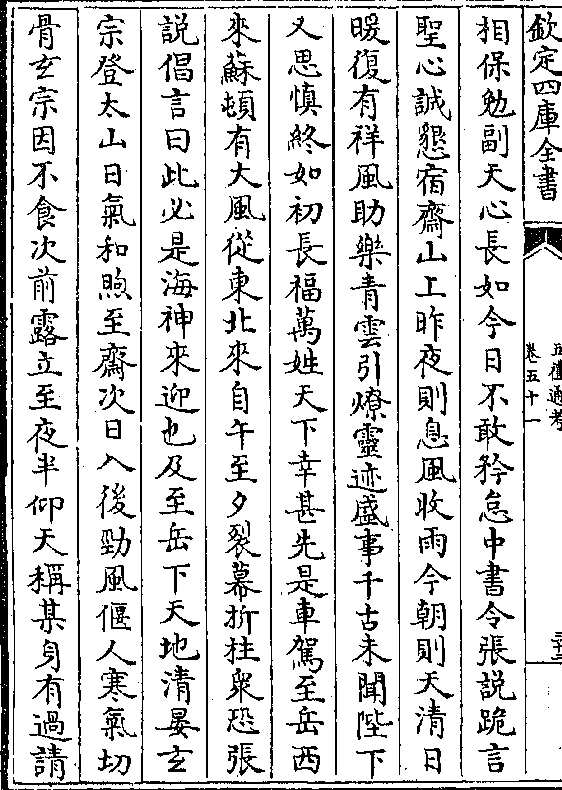 欽定四庫全書
五禮通考
卷五十一
三十三
相保勉副天心長如今日不敢矜怠中書令張説跪言
聖心誠懇宿齋山上昨夜則息風收雨今朝則天清日
暖復有祥風助樂青雲引燎靈迹盛事千古未聞陛下
又思慎終如初長福萬姓天下幸甚先是車駕至岳西
來蘇頓有大風從東北來自午至夕裂幕折柱衆恐張
説倡言曰此必是海神來迎也及至岳下天地清晏玄
宗登太山日氣和煦至齋次日入後勁風偃人寒氣切
骨玄宗因不食次前露立至夜半仰天稱某身有過請